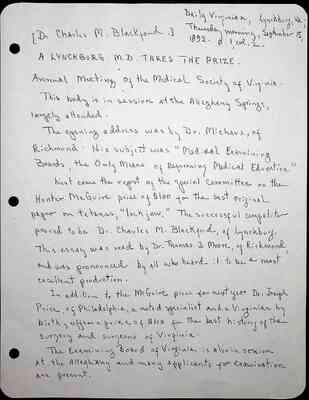 Daily Virginian, Lynchburg, Va.
Thursday morning, September 15,
1892. p. 1 col. 2.
[Dr. Charles M. Blackford.]
A LYNCHBURG M.D. TAKES THE PRIZE.
Annual Meeting of the Medical Society of Virginia.
This body is in session at the Alleghany Springs,
largely attended.
The opening address was by Dr. Michaux, of
Richmond. His subject was "Medical Examining
Boards, the Only Means of Reforming Medical Education."
Next came the report of the special committee on the
Hunter McGuire prize of $100 for the best original
paper on tetanus, "lockjaw." The successful competitor
proved to be Dr. Charles M. Blackford, of Lynchburg.
This essay was read by Dr. Thomas J. Moore, of Richmond
and was pronounced by all who heard it to be a most
excellent production.
In addition to the McGuire prize for next year Dr. Joseph
Price, of Philadelphia, a noted specialist and a Virginian by
birth, offers a prize of $100 for the best history of the
surgery and surgeons of Virginia.
The Examining Board of Virginia is also in session
at the Alleghany and many applicants for examination
are present.